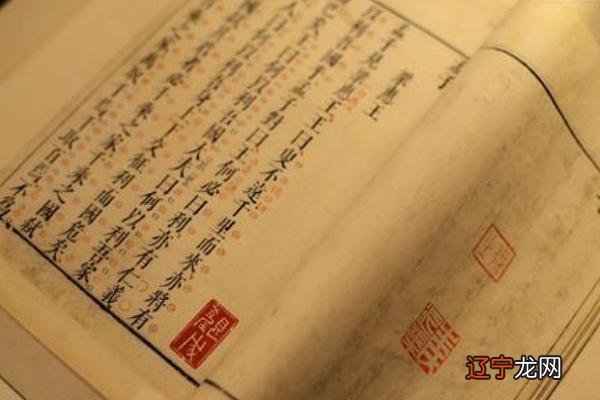 梁惠王
孟子見梁惠王王曰叟不遠千里而來亦將有
利吾國乎孟子對曰王何必曰利亦有仁義
已矣王曰何以利吾國大夫曰何以利吾家
人曰何以利吾身上下交征利而國危矣
其君者必千乘之家千乘之國弒
之家萬取千焉千取百焉不為
辽宁龙网